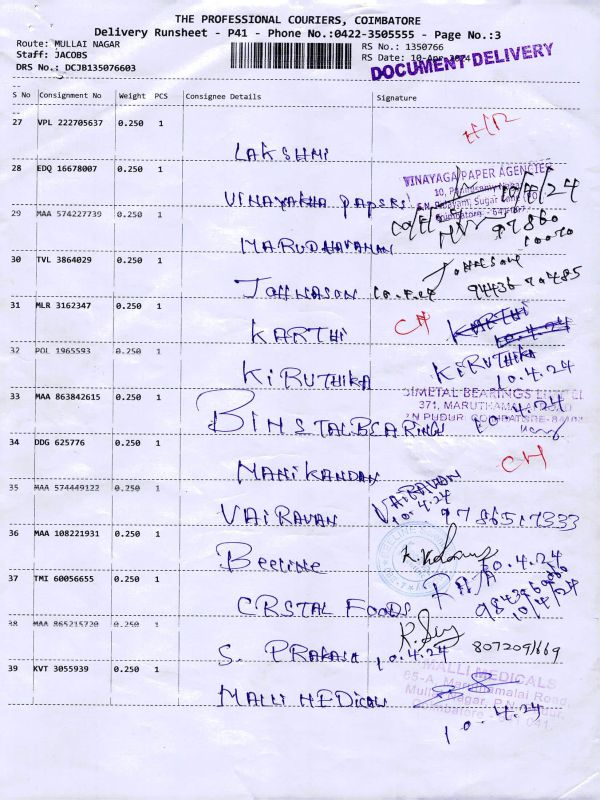 THE PROFESSIONAL COURIERS, COIMBATORE
Delivery Runsheet - P41 - Phone No.:0422-3505555 - Page No.:3
Route: MULLAI NAGAR
RS No.: 1350766
Staff: JACOBS
RS Date: 10-Apr-2024
DRS No.: DCJB135076603
DOCUMENT DELIVERY
S No Consignment No Weight PCS Consignee Details Signature
27 VPL 222705637 0.250 1
LAKSHMI
28 EDQ 16678007 0.250 1
VINAYAGA PAPER AGENCIES
VINAYAKHA PAPERS 10/4/24
29 MAA 574227739 0.250 1
MARUDHAVANAN
30 TVL 3864029 0.250 1
JOHHNASON 94436 70485
31 MLR 3162347 0.250 1
CH
KARTHI KARTHI
10.4.24
32 POL 1965593 0.250 1
KIRUTHIKA KIRUTHIKA
10.4.24
33 MAA 863842615 0.250 1
DIMETAL BEARINGS LIMITED
371, MARUTHAMALAI ROAD
PN PUDUR, COIMBATORE-
BIMSTALBEARINGS 10.4.24
34 DDG 625776 0.250 1
CH
MANIKANDAN
35 MAA 574449122 0.250 1
VAIRAVAN
10.4.24
VAIRAVAN 9786517333
36 MAA 108221931 0.250 1
Beeline 10.4.24
37 TMI 60056655 0.250 1
RAJA
CRSTAL FOODS 10/4/24
38 MAA 865215720 0.250 1
S. PRAKASH 10.4.24 8072091669
39 KVT 3055939 0.250 1
MALLI MEDICALS
65-A, Maruthamalai Road,
Mullai Nagar, P.N. Pudur,
Coimbatore - 641 041.
MALLI MEDICAL
10.4.24